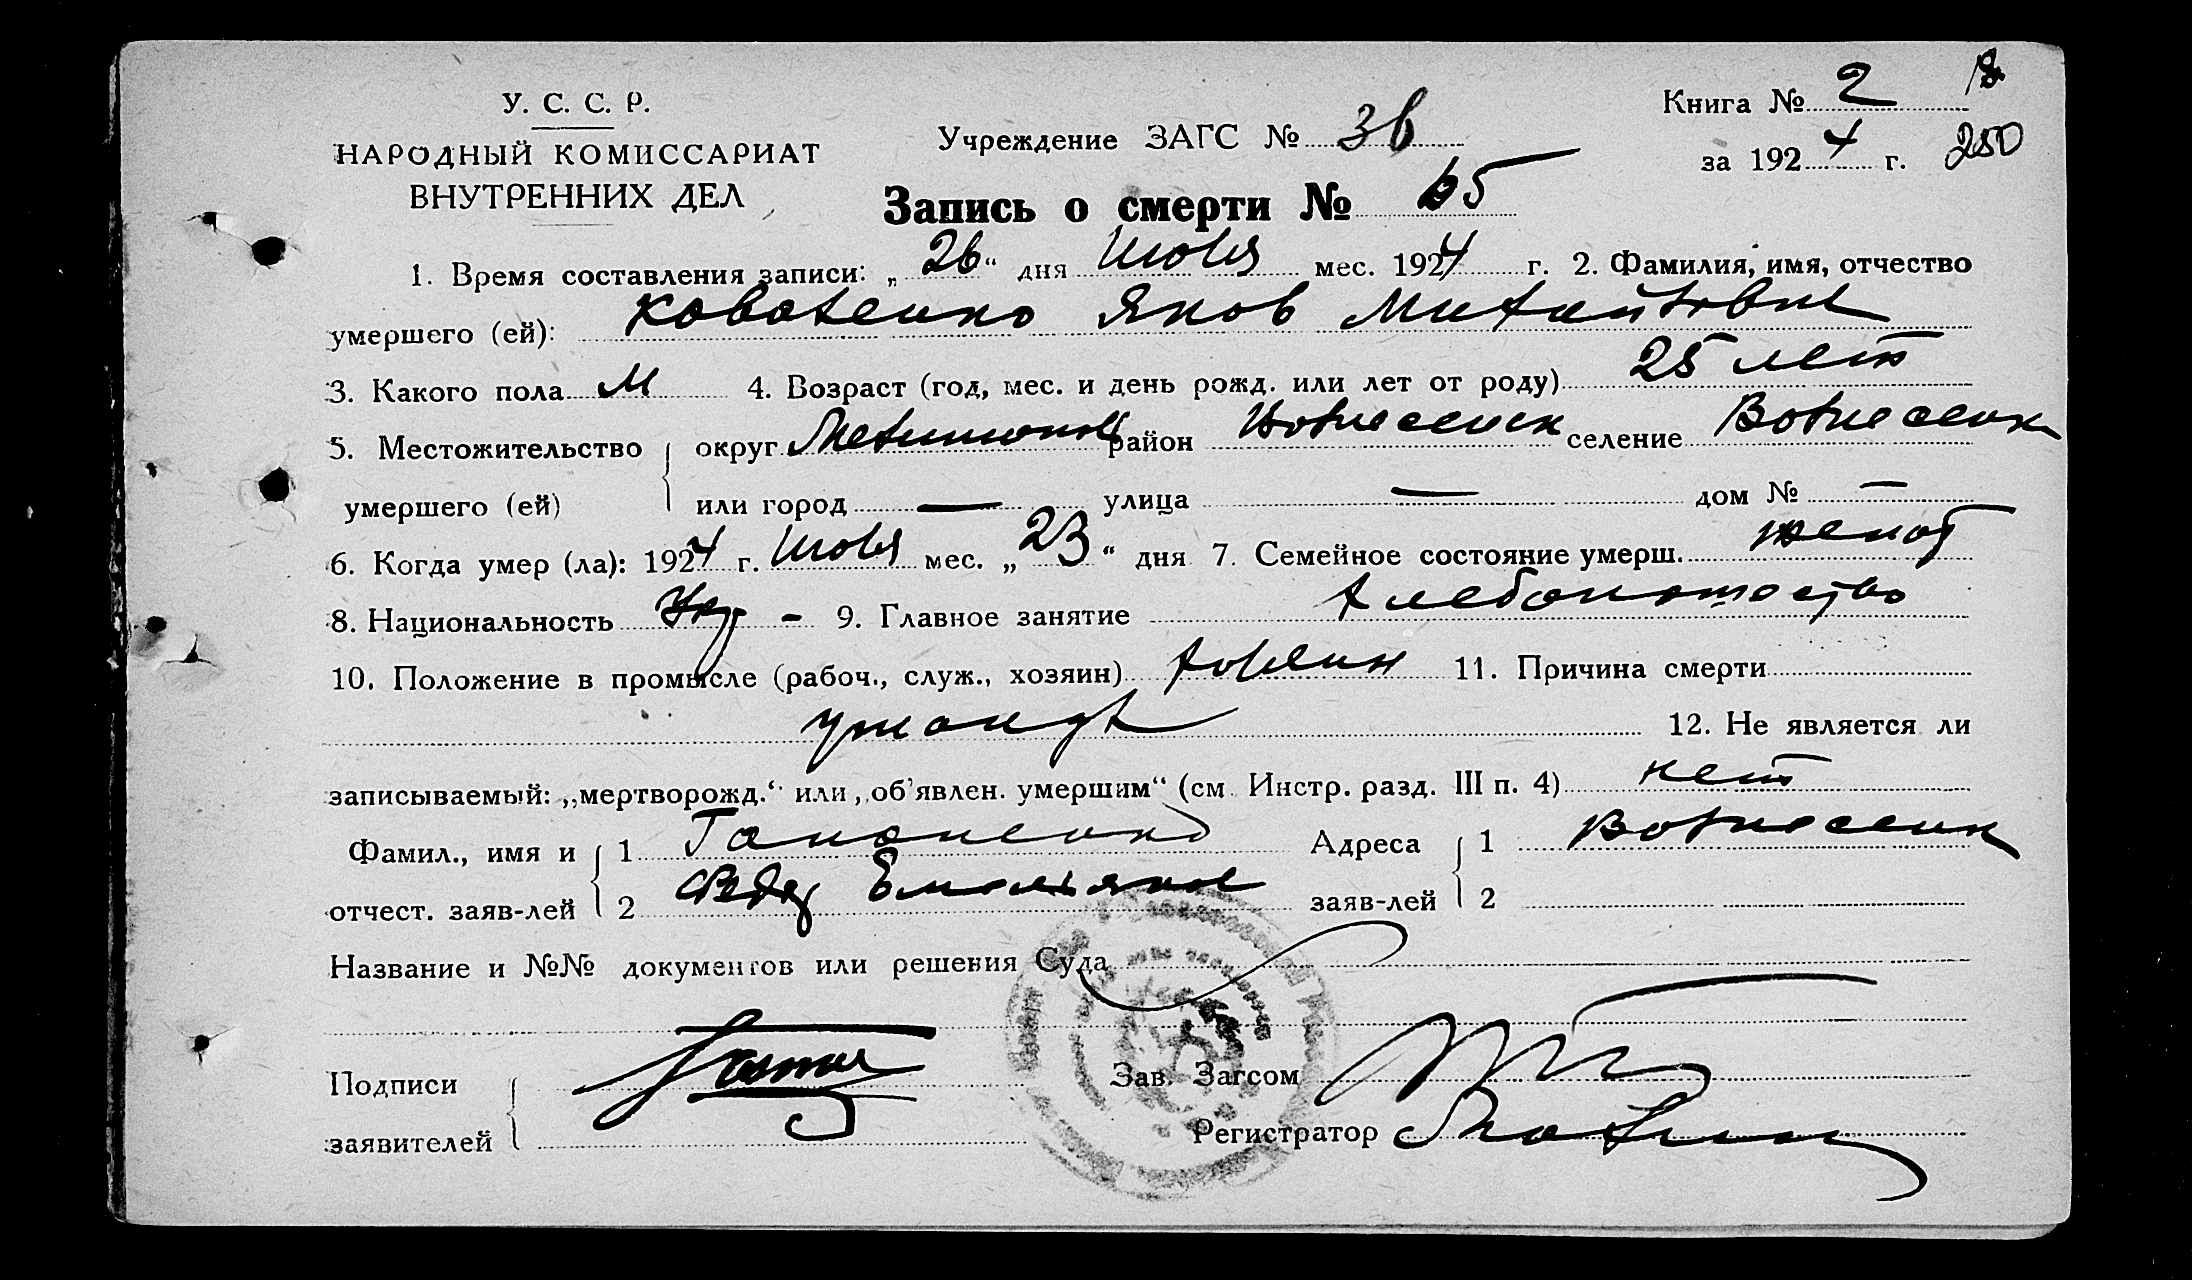 У. С. С. Р.
НАРОДНЫЙ КОМИССАРИАТ
ВНУТРЕННИХ ДЕЛ
Книга № 2
за 1924 г. 250
Учреждение ЗАГС № 36
Запись о смерти № 65
1. Время составления записи: „26“ дня Июля мес. 1924 г. 2. Фамилия, имя, отчество
умершего (ей): Яков Михайлович
3. Какого пола М 4. Возраст (год, мес. и день рожд. или лет от роду) 25 лет
5. Местожительство { округ район Вознесенск селение Вознесенк
умершего (ей) или город — улица — дом № —
6. Когда умер (ла): 1924 г. Июля мес. „23“ дня 7. Семейное состояние умерш. женат
8. Национальность Укр - 9. Главное занятие хлебопашество
10. Положение в промысле (рабоч., служ., хозяин) хозяин 11. Причина смерти
12. Не является ли
записываемый: „мертворожд.“ или „об'явлен. умершим“ (см. Инстр. разд. III п. 4) нет
Фамил., имя и { 1 Гапоненко Адреса { 1 Вознесенк
отчест. заяв-лей 2 Емельянов заяв-лей 2
Название и №№ документов или решения Суда
Подписи {
Зав. Загсом
заявителей
Регистратор